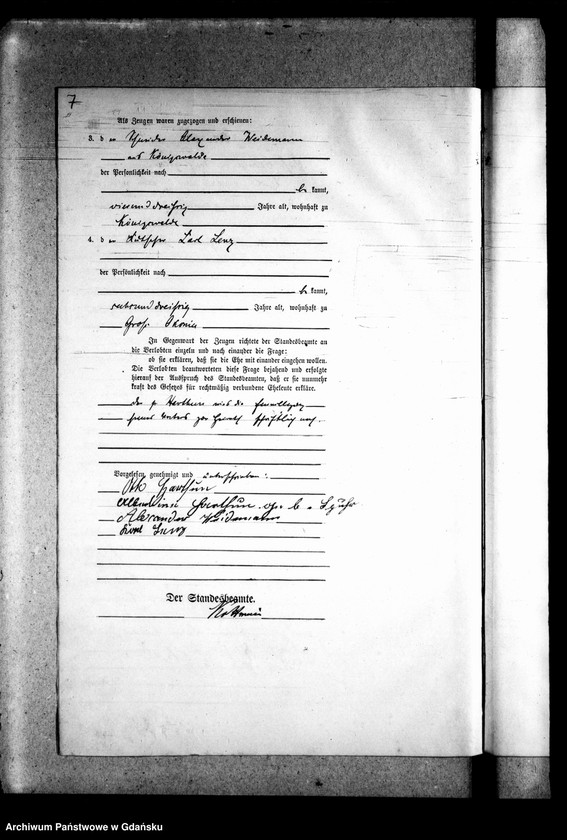 7
Als Zeugen waren zugezogen und erschienen:
3. d er Schneider Alexander Weidemann
aus Königswalde
der Persönlichkeit nach
be kannt,
vierunddreißig Jahre alt, wohnhaft zu
Königswalde
4. d er Karl Lenz
der Persönlichkeit nach
be kannt,
Jahre alt, wohnhaft zu
Groß
In Gegenwart der Zeugen richtete der Standesbeamte an
die Verlobten einzeln und nach einander die Frage:
ob sie erklären, daß sie die Ehe mit einander eingehen wollen.
Die Verlobten beantworteten diese Frage bejahend und erfolgte
hierauf der Ausspruch des Standesbeamten, daß er sie nunmehr
kraft des Gesetzes für rechtmäßig verbundene Eheleute erkläre.
der p Harthun die Einwilligung
seines Vaters zur Heirath schriftlich nach.
Vorgelesen, genehmigt und unterschrieben:
Otto Harthun
Harthun geb.
Alexander Weidemann
Karl Lenz
Der Standesbeamte.